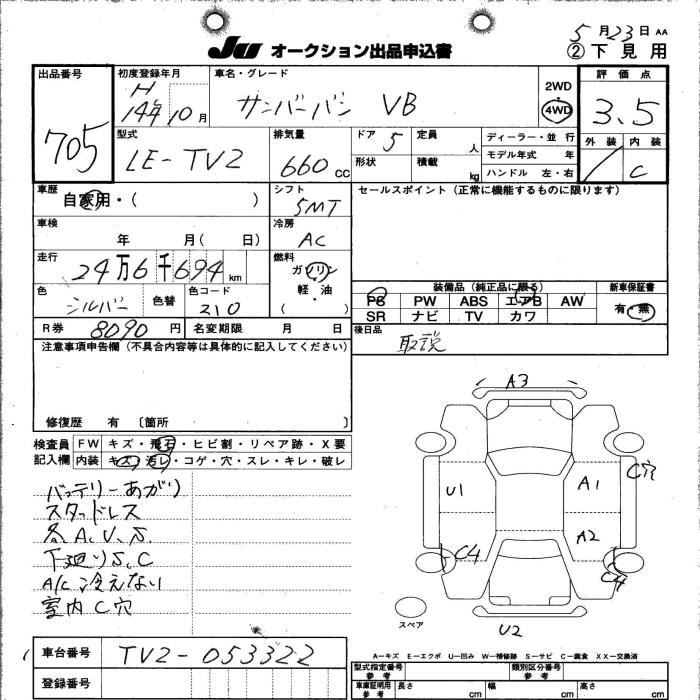 5月23日 AA
JU オークション出品申込書
② 下見用
出品番号
705
初度登録年月
H
14年10月
車名・グレード
サンバーバン VB
2WD
4WD
評価点
3.5
型式
LE-TV2
排気量
660 cc
ドア 5
形状
定員 人
積載 kg
ディーラー・並行
モデル年式 年
ハンドル 左・右
外装 内装
/ C
車歴
自家用・( )
シフト
5MT
セールスポイント (正常に機能するものに限ります)
車検
年 月( 日)
冷房
AC
走行
24万6千694 km
燃料
ガソリン
軽・油
( )
色
シルバー
色替
色コード
210
装備品 (純正品に限る)
PS PW ABS エアB AW
SR ナビ TV カワ
新車保証書
有・無
R券 8090 円
名変期限 月 日
後日品
取説
注意事項申告欄 (不具合内容等は具体的に記入してください)
修復歴 有 〔箇所 〕
検査員
記入欄
FW キズ・飛石・ヒビ割・リペア跡・X要
内装 キズ・汚レ・コゲ・穴・スレ・キレ・破レ
バッテリーあがり
スタッドレス
各A、U、S
下廻りS、C
A/C冷えない
室内C穴
A3
U1
A1
C穴
A2
C4
C4
スペア
U2
A-キズ E-エクボ U-凹み W-補修跡 S-サビ C-腐食 XX-交換済
車台番号 TV2-053322
登録番号
型式指定番号
参考
類別区分番号
参考
車庫証明用
参考
長さ cm
幅 cm
高さ cm